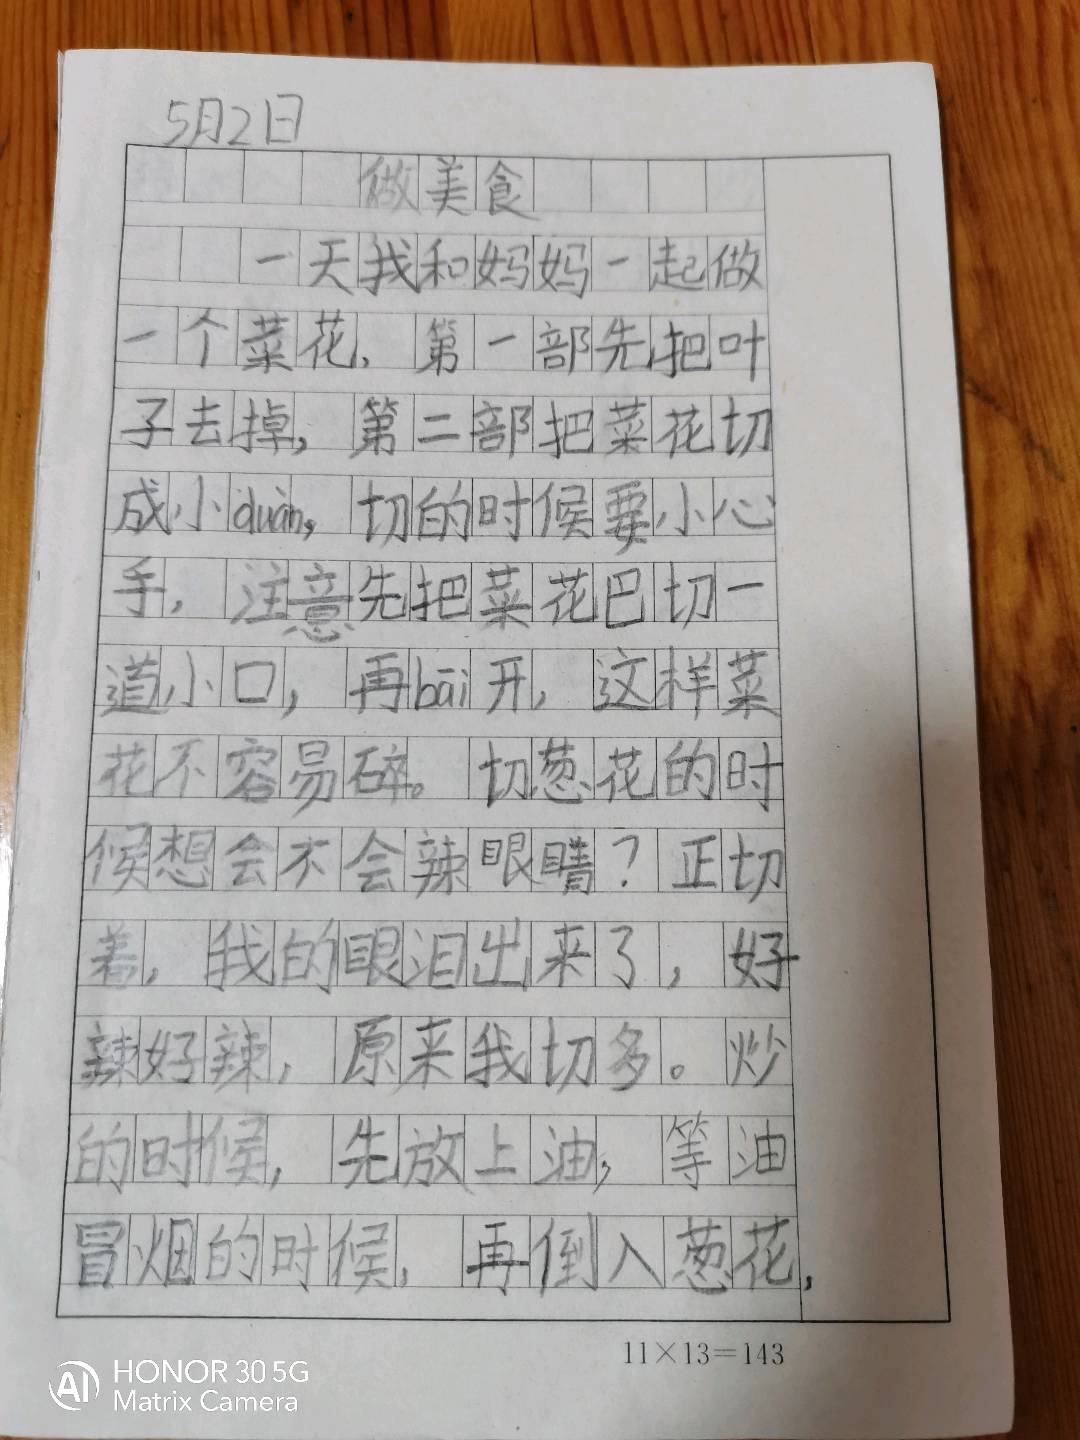 5月2日
做美食
一天我和妈妈一起做
一个菜花,第一部先把叶
子去掉,第二部把菜花切
成小duàn,切的时候要小心
手,注意先把菜花巴切一
道小口,再bāi开,这样菜
花不容易碎。切葱花的时
候想会不会辣眼睛?正切
着,我的眼泪出来了,好
辣好辣,原来我切多。炒
的时候,先放上油,等油
冒烟的时候,再倒入葱花,
11×13=143
AI HONOR 30 5G
Matrix Camera